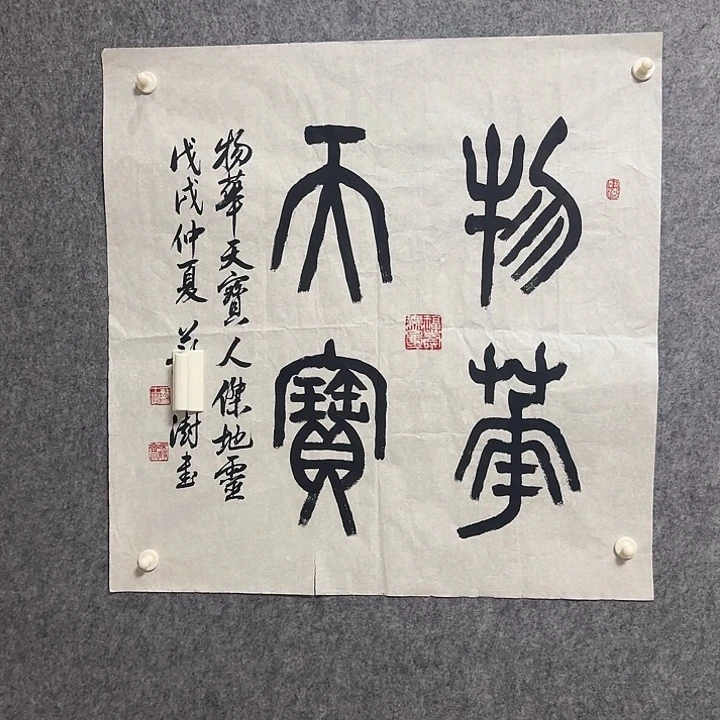 物華
天寶
物華天寶人傑地靈
戊戌仲夏 澍書